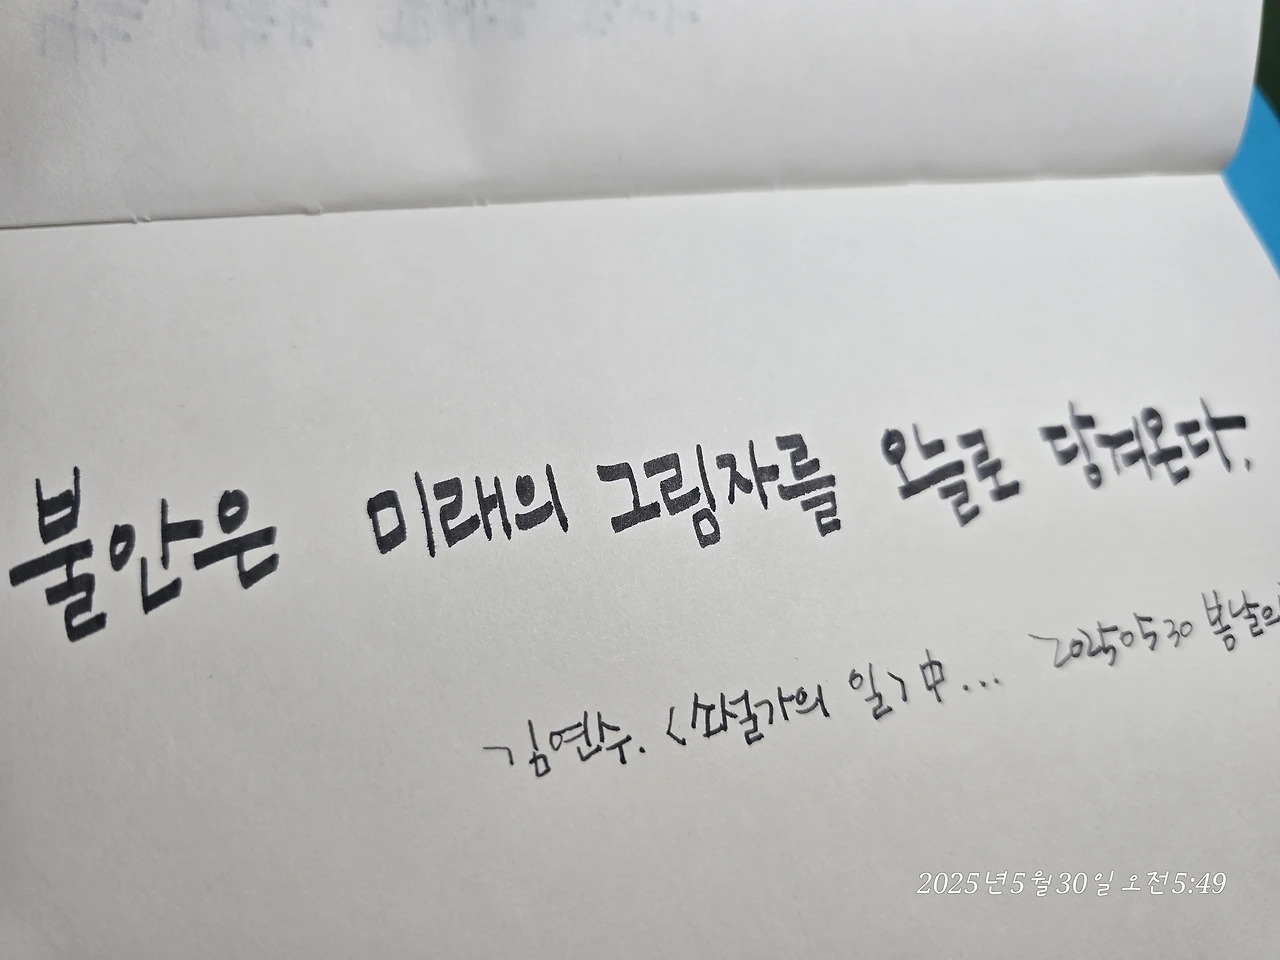 불안은 미래의 그림자를 오늘로 당겨온다.
20250530 봄날의
김연수. <소설가의 일> 中...
2025년5월30일 오전5:49